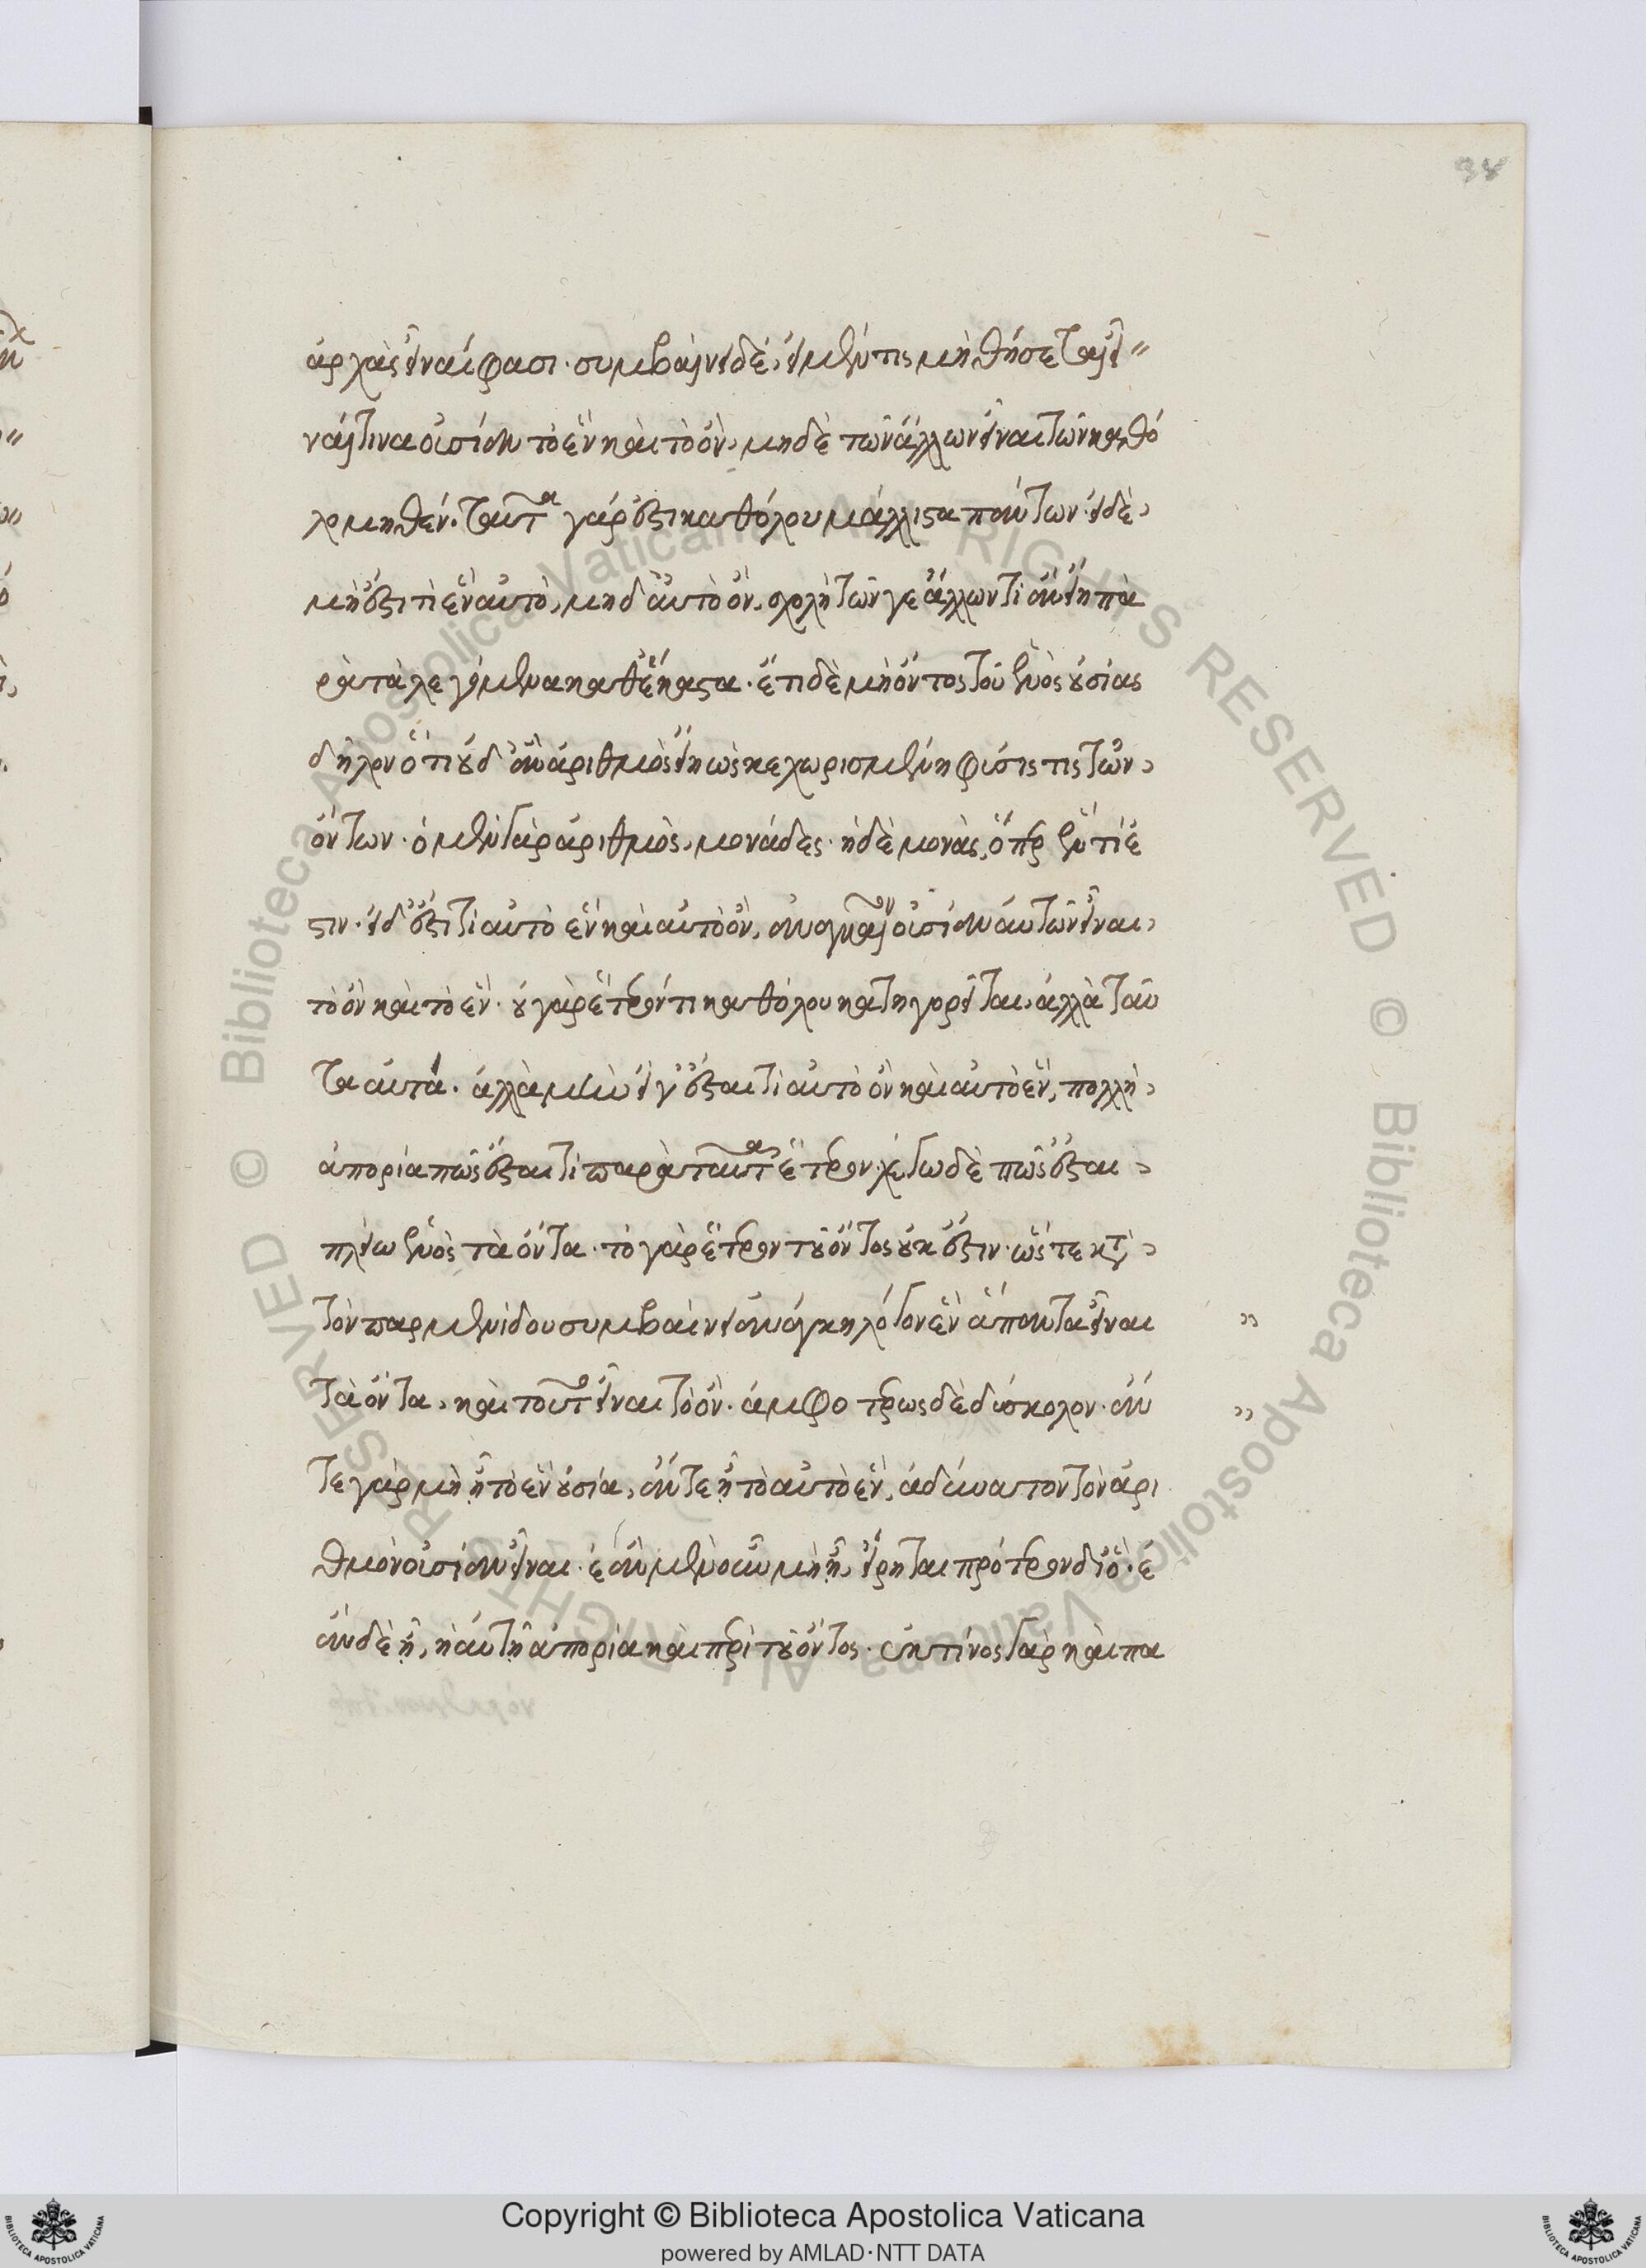 38
ἀρχὰς εἶναί φασι· συμβαίνει δὲ, εἰ μέν τις μὴ θήσεται εἶ〃
ναί τινα οὐσίαν τὸ ἓν καὶ τὸ ὂν, μηδὲ τῶν ἄλλων εἶναι τῶν καθό
λου μηθέν. ταῦτα γάρ ἐστι καθόλου μάλλιστα πάντων· εἰ δὲ
μὴ ἔστι τι ἓν αὐτὸ, μηδ' αὐτὸ ὂν, σχολῆ τῶν γε ἄλλων τι ἂν εἴη πα
ρὰ τὰ λεγόμενα καθ' ἕκαστα· ἔτι δὲ μὴ ὄντος τοῦ ἑνὸς οὐσίας
δῆλον ὅτι οὐδ' ἂν ἀριθμὸς εἴη ὡς κεχωρισμένη φύσις τις τῶν
ὄντων· ὁ μὲν γὰρ ἀριθμὸς, μονάδες· ἡ δὲ μονὰς, ὅπερ ἕν τί ἐ
στιν· εἰ δ' ἔστι τι αὐτὸ ἓν καὶ αὐτὸ ὂν, ἀναγκαῖον οὐσίαν αὐτῶν εἶναι
τὸ ὂν καὶ τὸ ἕν· οὐ γὰρ ἕτερόν τι καθόλου κατηγορεῖται, ἀλλὰ ταῦ
τα αὐτά. ἀλλὰ μὴν εἴ γ' ἔσται τι αὐτὸ ὂν καὶ αὐτὸ ἓν, πολλὴ
ἀπορία πῶς ἔσται τι παρὰ ταῦτα ἕτερον. λέγω δὲ πῶς ἔσται
πλείω ἑνὸς τὰ ὄντα· τὸ γὰρ ἕτερον τοῦ ὄντος οὐκ ἔστιν· ὥστε κατὰ
τὸν παρμενίδου συμβαίνειν ἀνάγκη λόγον ἓν ἅπαντα εἶναι
τὰ ὄντα, καὶ τοῦτο εἶναι τὸ ὄν. ἀμφοτέρως δὲ δύσκολον· ἄν
τε γὰρ μὴ ᾖ τὸ ἓν οὐσία, ἄν τε ᾖ τὸ αὐτὸ ἓν, ἀδύνατον τὸν ἀρι
θμὸν οὐσίαν εἶναι· ἐὰν μὲν οὖν μὴ ᾖ, εἴρηται πρότερον διό· ἐ
ὰν δὲ ᾖ, ἡ αὐτὴ ἀπορία καὶ περὶ τοῦ ὄντος· ἐκ τίνος γὰρ καὶ πα
Copyright © Biblioteca Apostolica Vaticana
powered by AMLAD·NTT DATA